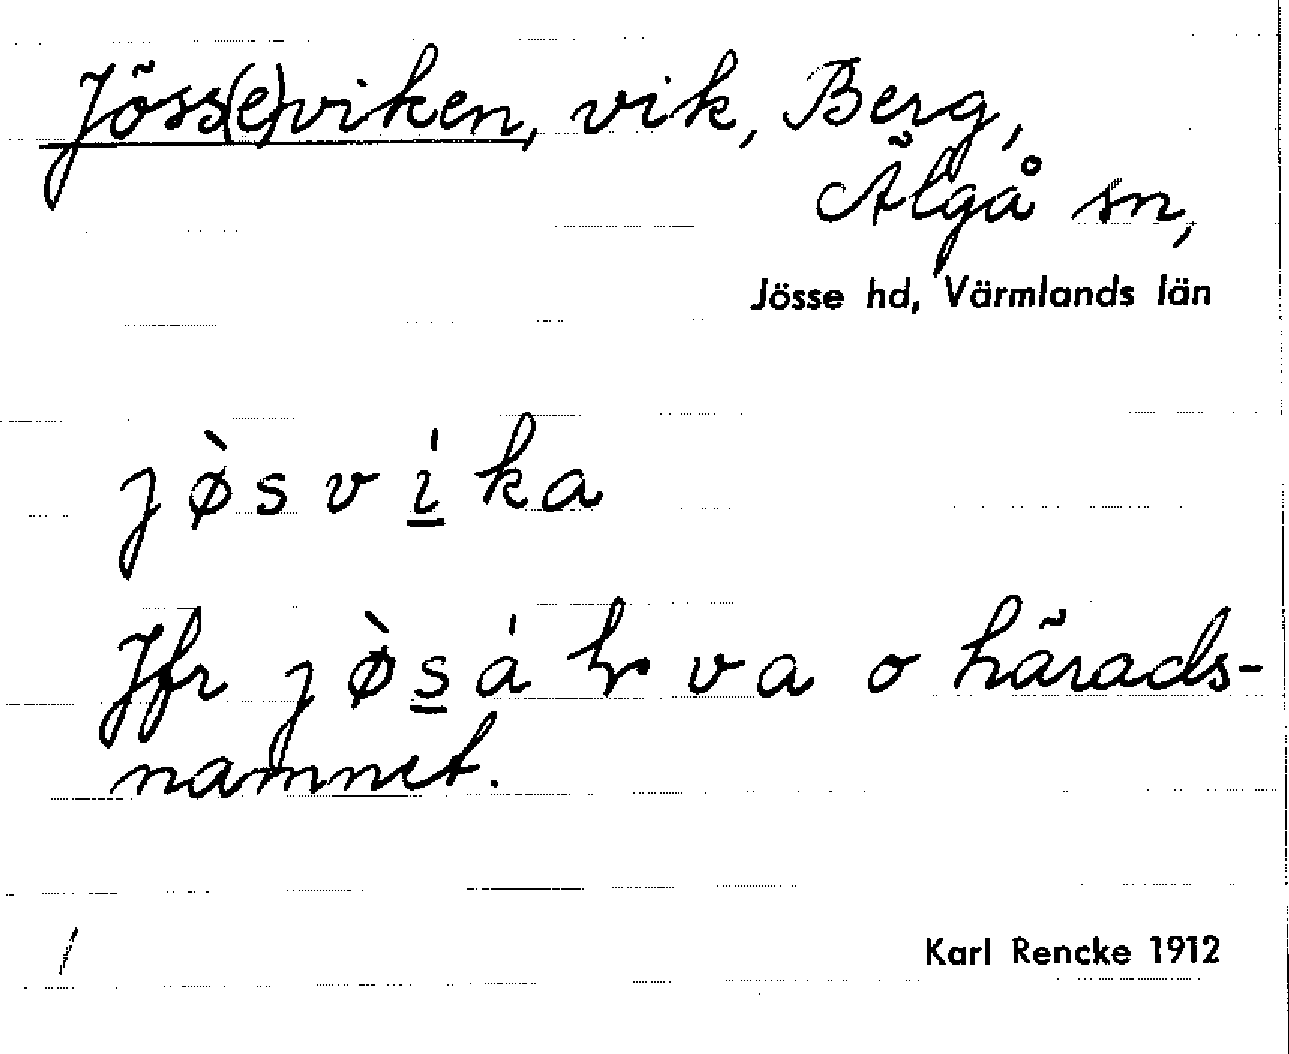 Jöss(e)viken, vik, Berg,
Älgå sn,
Jösse hd, Värmlands län
jø̀svíka
Jfr jø̀sáꞎva o härads-
namnet.
/
Karl Rencke 1912